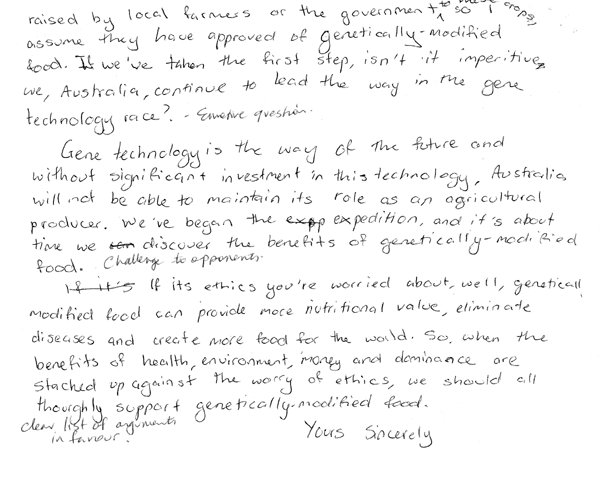 raised by local farmers or the government to these crops, so I
assume they have approved of genetically-modified
food. If we've taken the first step, isn't it imperitive,
we, Australia, continue to lead the way in the gene
technology race? - Emotive question.
Gene technology is the way of the future and
without significant investment in this technology, Australia
will not be able to maintain its role as an agricultural
producer. We've began the expp expedition, and it's about
time we discover the benefits of genetically-modified
food. Challenge to opponents.
If it's If its ethics you're worried about, well, genetically
modified food can provide more nutritional value, eliminate
diseases and create more food for the world. So, when the
benefits of health, environment, money and dominance are
stacked up against the worry of ethics, we should all
thoroughly support genetically-modified food.
clear list of arguments
in favour.
Yours Sincerely